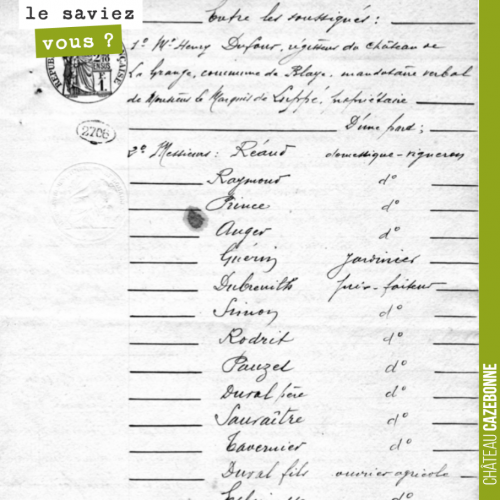 le saviez
vous ?
Entre les soussignés :
1º Mr Henry Dufour, régisseur du château de
La Grange, commune de Blaye, mandataire verbal
de Monsieur le Marquis de Luppé, propriétaire
D'une part ;
2206
2º Messieurs : Réaud domestique-vigneron
Raymond dº
Prince dº
Auger dº
Guérin jardinier
Dubreuilh prix-faiteur
Simon dº
Rodrit dº
Pauzet dº
Duval père dº
Sauraître dº
Tavernier dº
Duval fils ouvrier agricole
CHÂTEAU CAZEBONNE